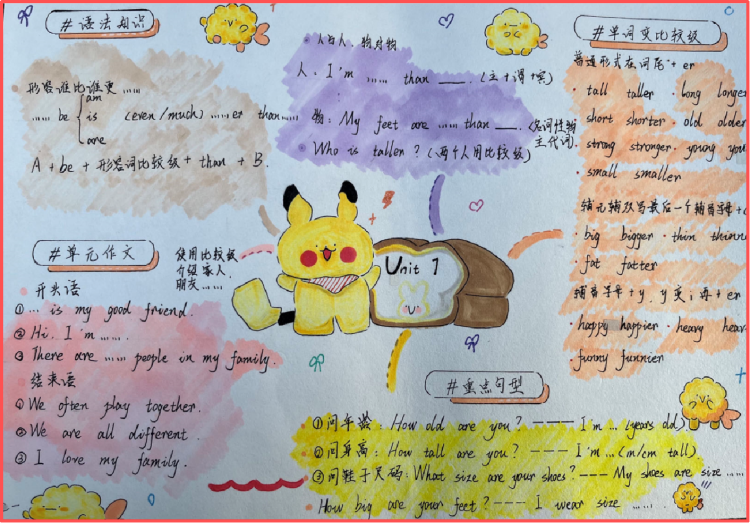 #语法知识
形容谁比谁更……
am
…… be is (even/much) ……er than……
are
A + be + 形容词比较级 + than + B.
人与人、物对物
人、I'm …… than ___. (主+谓+宾)
物: My feet are …… than ___. (名词性物主代词)
Who is taller? (两个人用比较级)
#单词变比较级
普通形式在词尾+er
· tall taller · long longer
short shorter · old older
strong stronger · young
· small smaller
辅元辅双写最后一个辅音字母+
· big bigger · thin
· fat fatter
辅音字母+y, y变i再+er
· happy happier
· funny funnier
#单元作文
使用比较级
介绍家人、
朋友……
开头语
① … is my good friend.
② Hi. I'm …….
③ There are …… people in my family.
结束语
① We often play together.
② We are all different.
③ I love my family.
Unit 1
#重点句型
①问年龄: How old are you? ---- I'm …(years old)
②问身高: How tall are you? ---- I'm …(m/cm tall)
③问鞋子尺码: What size are your shoes? --- My shoes are size ……
How big are your feet? --- I wear size …….